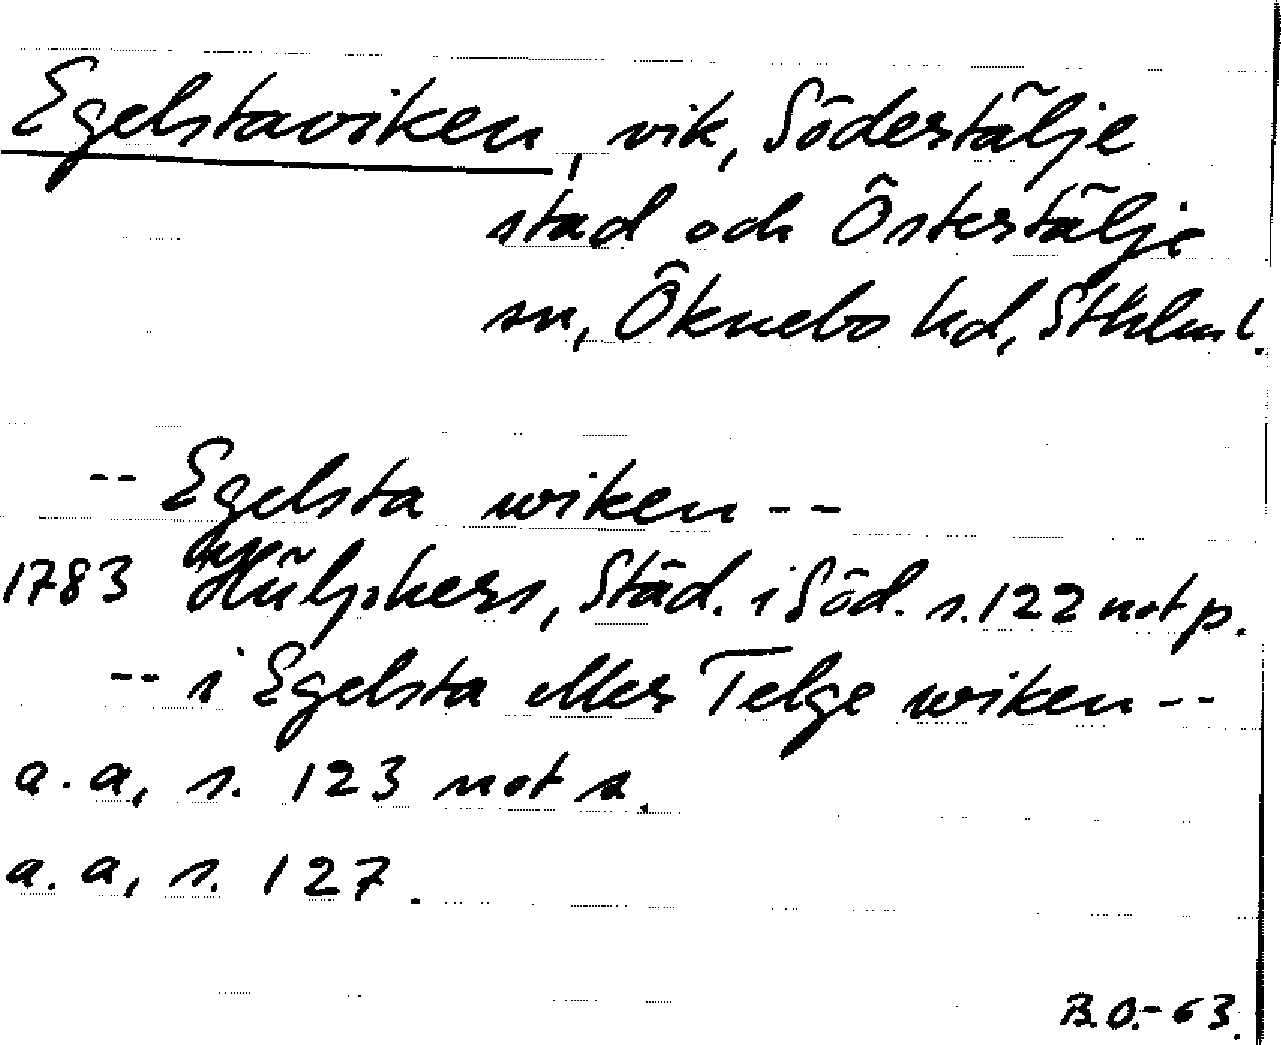 Egelstaviken, vik, Södertälje
stad och Östertälje
sn, Öknebo hd, Sthlms l.
-- Egelsta wiken --
1783 Hülphers, Städ. i Söd. s. 122 not p.
-- i Egelsta eller Telge wiken --
a. a, s. 123 not s.
a. a, s. 127.
B.O.-63.